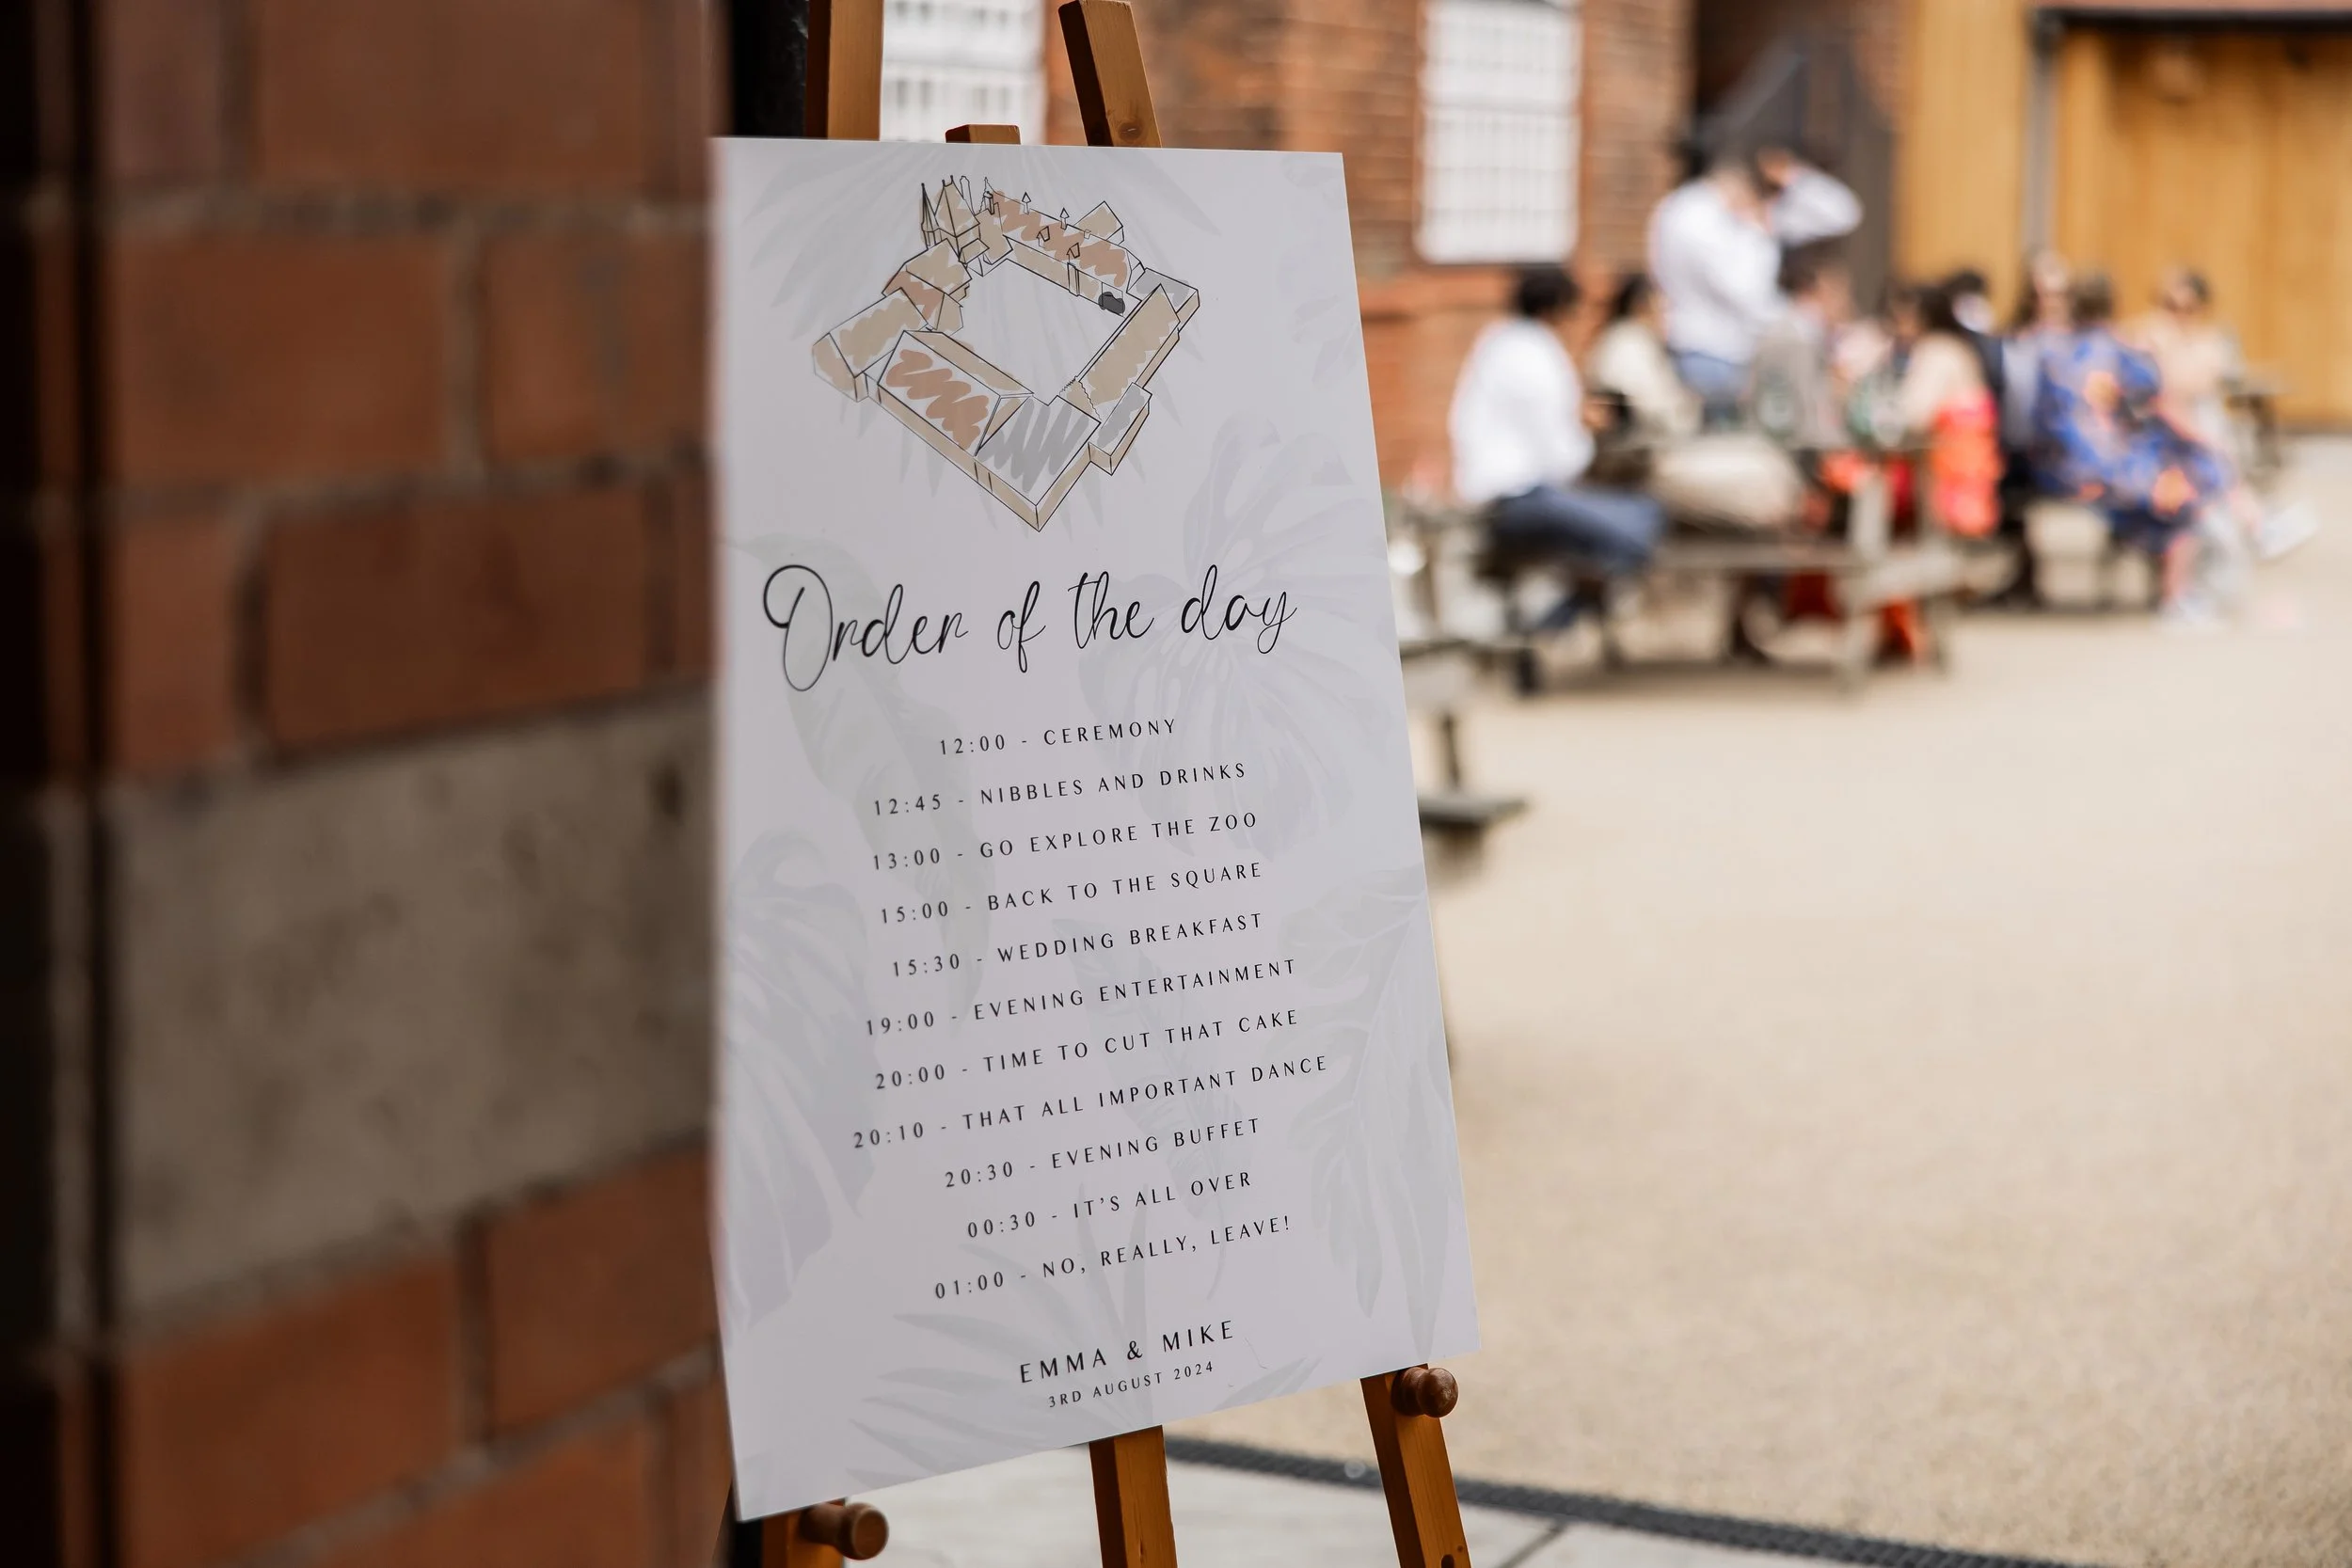 Order of the day
12:00 - CEREMONY
12:45 - NIBBLES AND DRINKS
13:00 - GO EXPLORE THE ZOO
15:00 - BACK TO THE SQUARE
15:30 - WEDDING BREAKFAST
19:00 - EVENING ENTERTAINMENT
20:00 - TIME TO CUT THAT CAKE
20:10 - THAT ALL IMPORTANT DANCE
20:30 - EVENING BUFFET
00:30 - IT'S ALL OVER
01:00 - NO, REALLY, LEAVE!
EMMA & MIKE
3RD AUGUST 2024